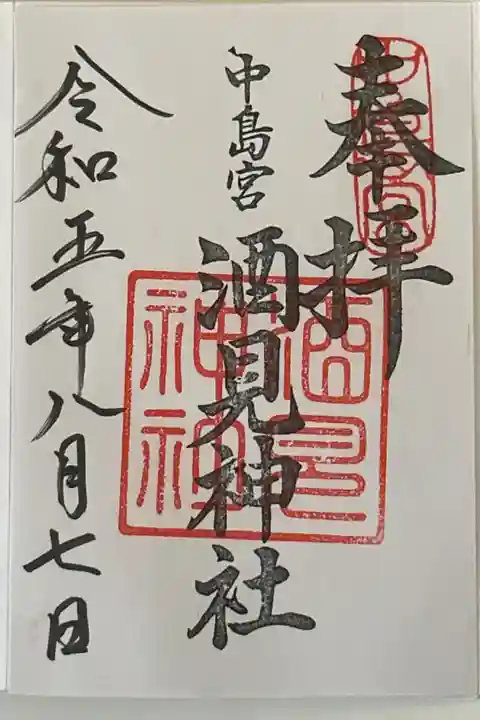 奉拝
中島宮
酒見神社
酒見神社
令和五年八月七日